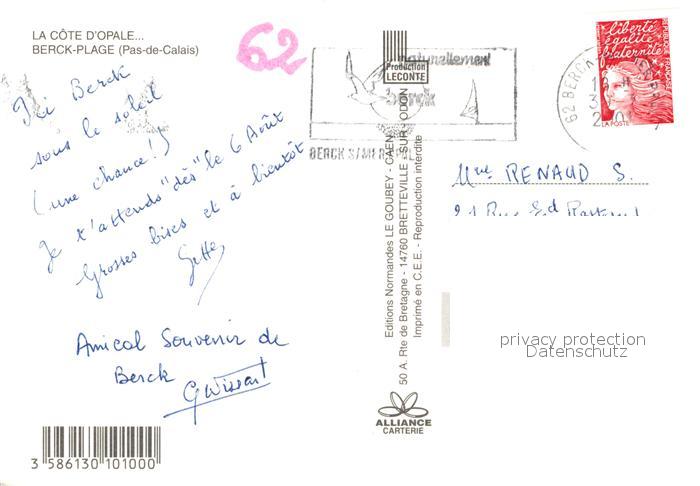 LA CÔTE D'OPALE...
BERCK-PLAGE (Pas-de-Calais)
62
Ici Berck
sous le soleil
(une chance!)
Je t'attends "dès" le 6 Août
Grosses bises et à bientôt
Amical Souvenir de
Berck
3 586130 101000
naturellement
Berck
BERCK S/MER
Production
LECONTE
Editions Normandes LE GOUBEY - CAEN
50 A. Rte de Bretagne - 14760 BRETTEVILLE SUR ODON
Imprimé en C.E.E. - Reproduction interdite
ALLIANCE
CARTERIE
liberté
égalité
fraternité
LA POSTE
62 BERCK
Mme RENAUD S.
21 Rue Ed
privacy protection
Datenschutz